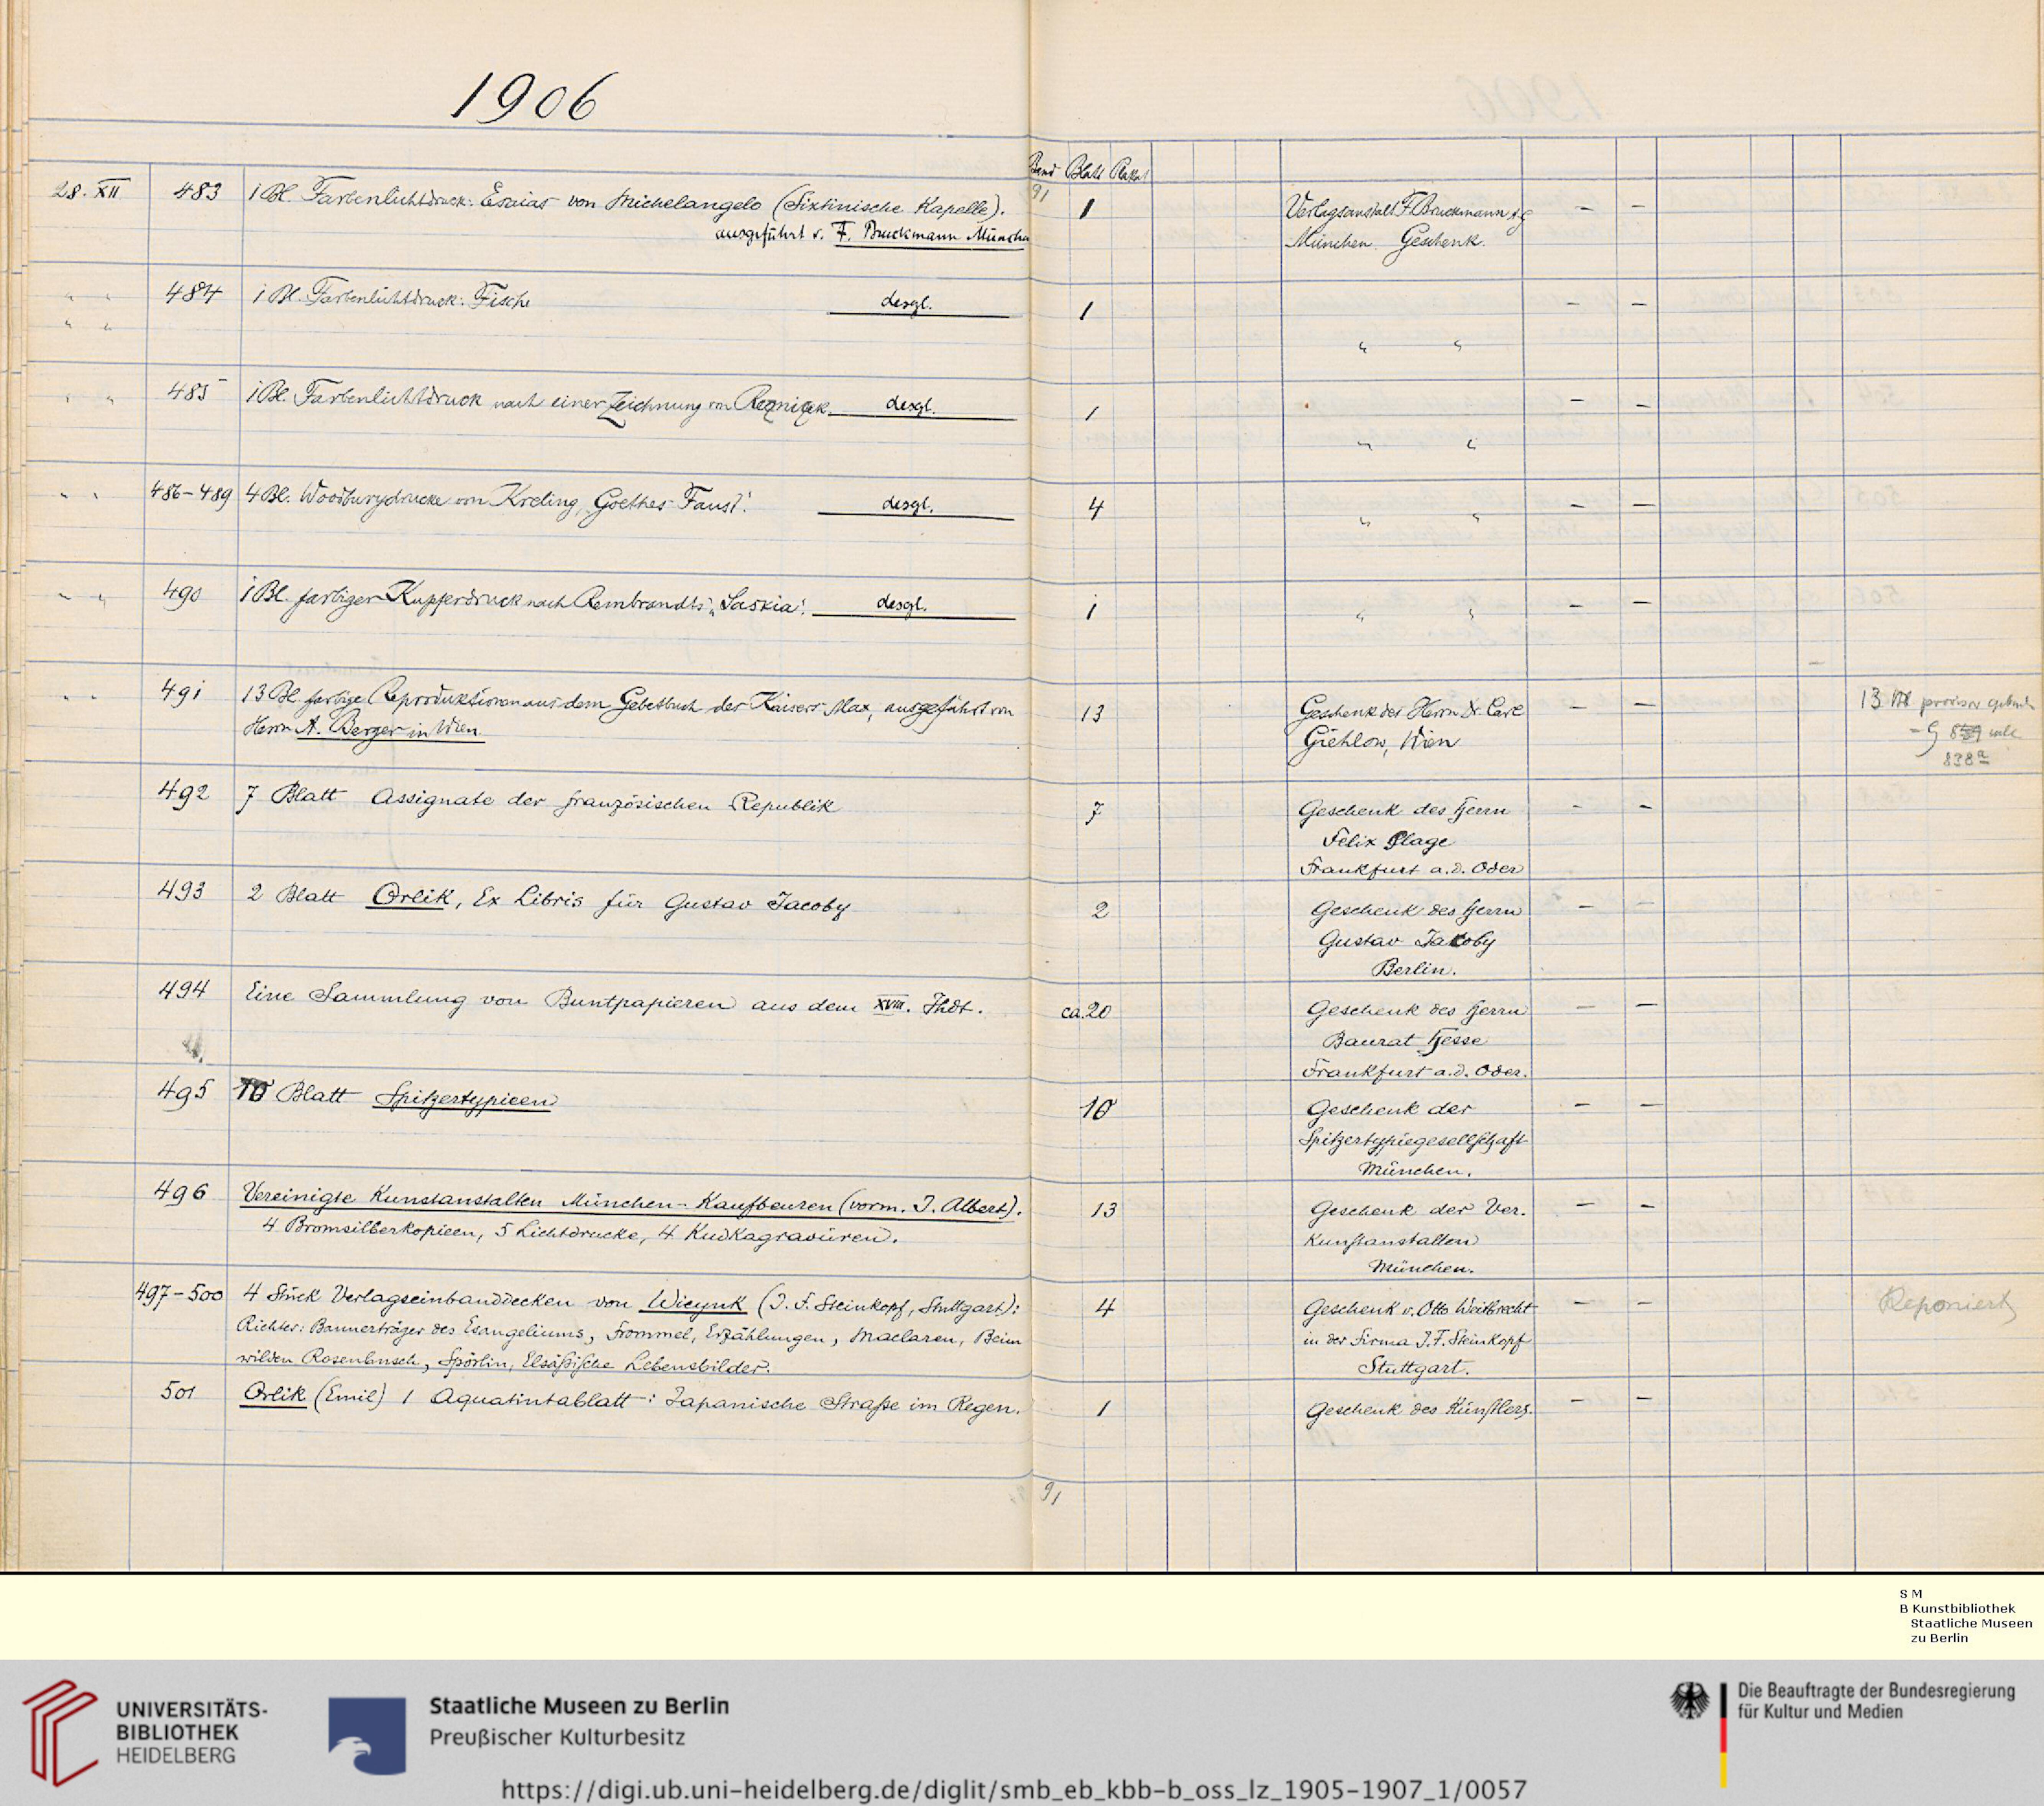 1906
Band Blatt Plakat
91
28. XII 483 1 Bl. Farbenlichtdruck: Esaias von Michelangelo (Sixtinische Kapelle). 1 Verlagsanstalt F. Bruckmann A.G. — —
ausgeführt v. F. Bruckmann München München Geschenk.
" " 484 1 Bl. Farbenlichtdruck: Fische desgl. 1 — —
" " " "
" " 485 1 Bl. Farbenlichtdruck nach einer Zeichnung von Reznicek. desgl. 1 — —
" "
" " 486-489 4 Bl. Woodburydrucke von Kreling, Goethes Faust'. desgl. 4 " " — —
" " 490 1 Bl. farbiger Kupferdruck nach Rembrandts „Saskia'. desgl. 1 " " — —
" " 491 13 Bl. farbige Reproduktionen aus dem Gebetbuch des Kaisers Max, ausgeführt von 13 Geschenk des Herrn Dr. Carl — — 13 Bl
Herrn A. Berger in Wien. Giehlow, Wien
838a
492 7 Blatt Assignate der französischen Republik 7 Geschenk des Herrn — —
Felix Plage
Frankfurt a.d. Oder
493 2 Blatt Orlik, Ex Libris für Gustav Jacoby 2 Geschenk des Herrn — —
Gustav Jacoby
Berlin.
494 Eine Sammlung von Buntpapieren aus dem XVIII. Jhdt. ca. 20 Geschenk des Herrn — —
Baurat Hesse
Frankfurt a.d. Oder.
495 10 Blatt Spitzertypieen 10 Geschenk der — —
Spitzertypiegesellschaft
München.
496 Vereinigte Kunstanstalten München-Kaufbeuren (vorm. J. Albert). 13 Geschenk der Ver. — —
4 Bromsilberkopieen, 5 Lichtdrucke, 4 Kudkagravüren. Kunstanstalten
München.
497-500 4 Stück Verlagseinbanddecken von Wieynk (J. F. Steinkopf, Stuttgart): 4 Geschenk v. Otto Weitbrecht — — Reponiert
Richter: Bannerträger des Evangeliums, Frommel, Erzählungen, Maclaren, Beim in der Firma J. F. Steinkopf
wilden Rosenbusch, Spörlin, Elsäßische Lebensbilder. Stuttgart.
501 Orlik (Emil) 1 Aquatintablatt: Japanische Straße im Regen. 1 Geschenk des Künstlers. — —
91
S M
B Kunstbibliothek
Staatliche Museen
zu Berlin
UNIVERSITÄTS-
BIBLIOTHEK
HEIDELBERG
Staatliche Museen zu Berlin
Preußischer Kulturbesitz
Die Beauftragte der Bundesregierung
für Kultur und Medien
https://digi.ub.uni-heidelberg.de/diglit/smb_eb_kbb-b_oss_lz_1905-1907_1/0057